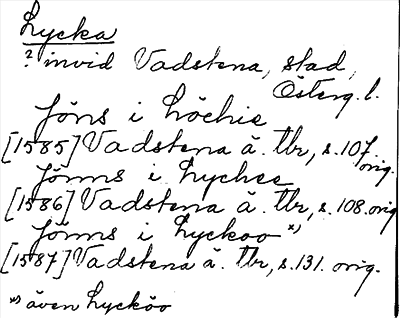 Lycka
? invid Vadstena, stad,
Österg. l.
Jöns i Löchie
[1585] Vadstena ä. tbr, s. 107 orig.
Jönns i Lychee
[1586] Vadstena ä. tbr, s. 108. orig
Jönns i Lyckoo *)
[1587] Vadstena ä. tbr, s. 131. orig.
*) även Lycköo